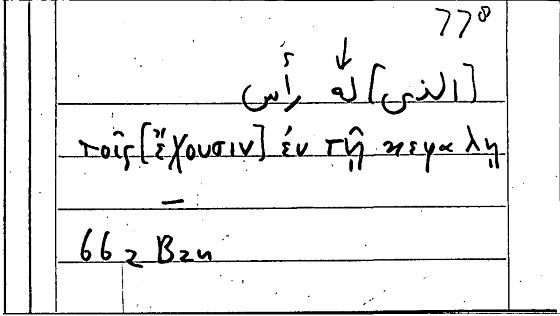 778
[الذى] له رأس
τοῖς [ἔχουσιν] ἐν τῇ κεφαλῇ
66 2 B 24